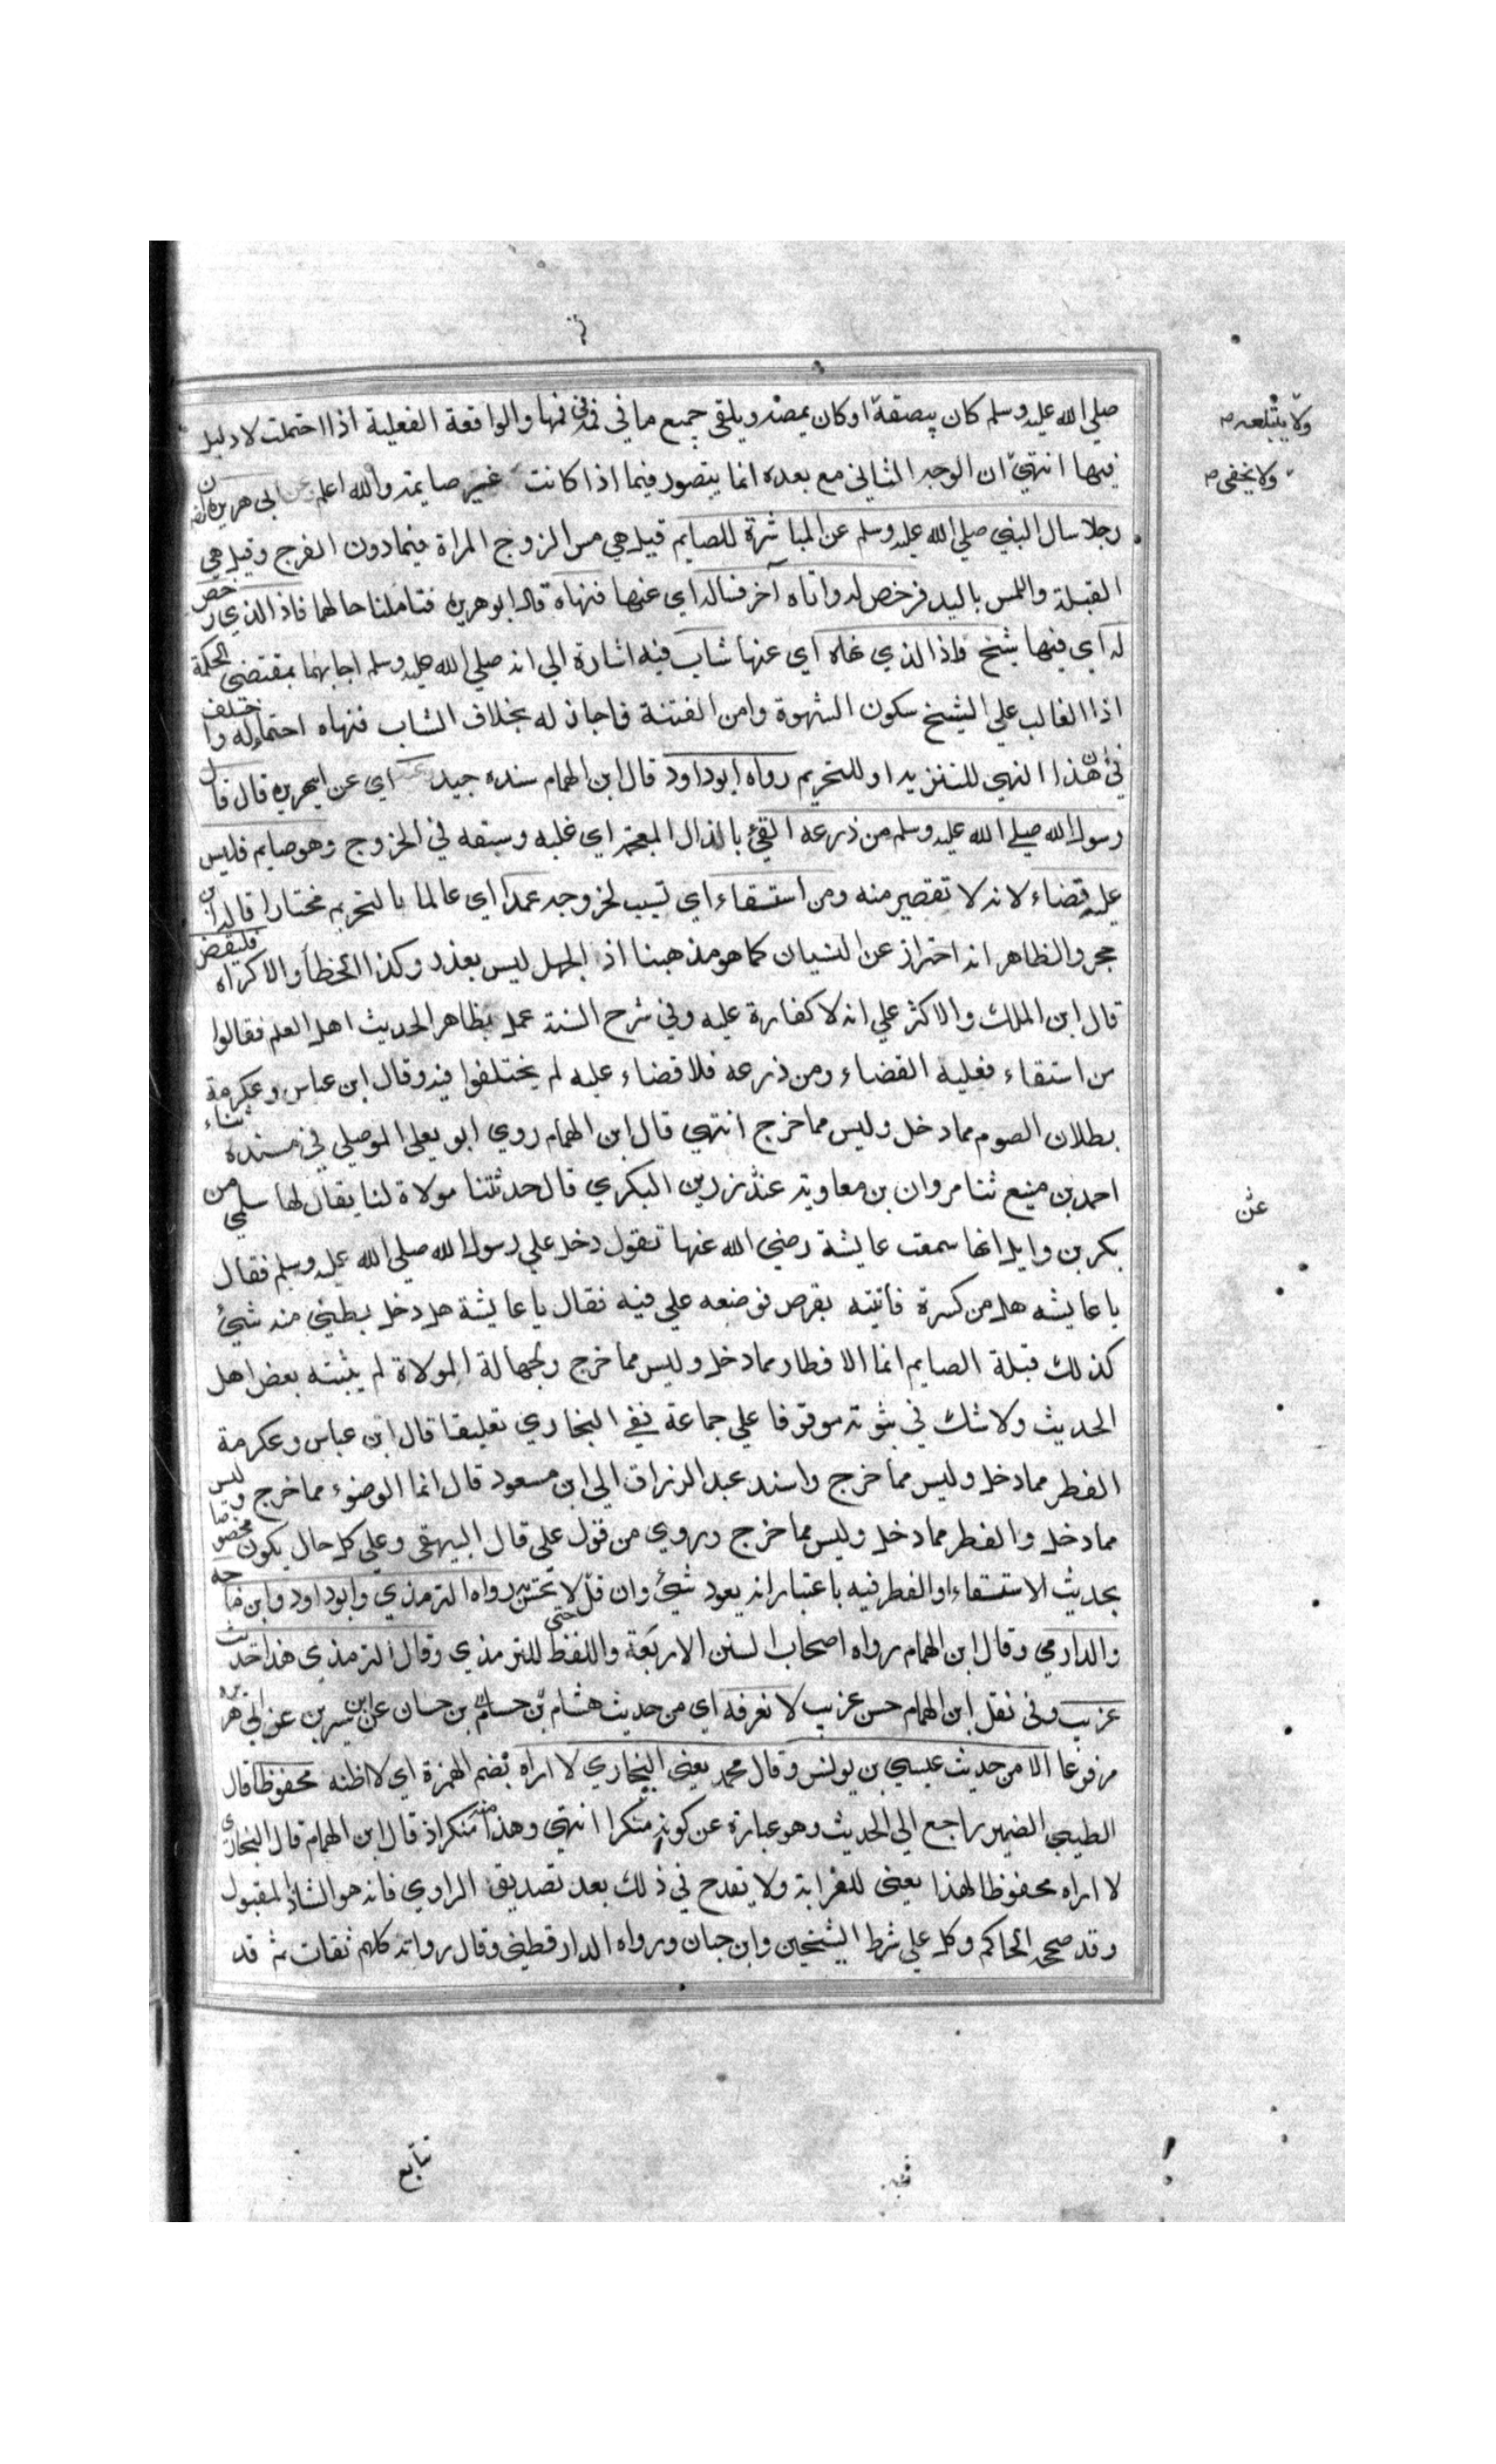 صلي الله عليه وسلم كان يبصقه او كان يمصه ويلقي جميع ما في فمه في فمها والواقعة الفعلية اذا احتملت لا دليل
ولا يبتلعه
فيها انتهي ان الوجه الثاني مع بعده انما يتصور فيما اذا كانت غير صايمة والله اعلم عن ابي هريرة ان
ولا يخفى
رجلا سال النبي صلي الله عليه وسلم عن المباشرة للصايم قيل هي مس الزوج المراة فيما دون الفرج وقيل هي
القبلة واللمس باليد فرخص له واتاه آخر فساله اي عنها فنهاه قال ابو هريرة فتاملنا حالهما فاذا الذي رخص
له اي فيها شيخ فاذا الذي نهاه اي عنها شاب فيه اشارة الي انه صلي الله عليه وسلم اجابهما بمقتضى الحكمة
اذا الغالب علي الشيخ سكون الشهوة وامن الفتنة فاجاز له بخلاف الشاب فنهاه احتماله واختلف
في هذا النهي للتنزيه او للتحريم رواه ابو داود قال ابن الهمام سنده جيد وعنه اي عن ابي هريرة قال قال
رسول الله صلي الله عليه وسلم من ذرعه القئ بالذال المعجمة اي غلبه وسبقه في الخروج وهو صايم فليس
عليه قضاء لانه لا تقصير منه ومن استقاء اي تسبب لخروجه عمدا اي عالما بالتحريم مختارا قاله ابن
حجر والظاهر انه احتراز عن النسيان كما هو مذهبنا اذ الجهل ليس بعذر وكذا الخطأ والاكراه فليقض
قال ابن الملك والاكثر علي انه لا كفارة عليه وفي شرح السنة عمل بظاهر الحديث اهل العلم فقالوا
من استقاء فعليه القضاء ومن ذرعه فلا قضاء عليه لم يختلفوا فيه وقال ابن عباس وعكرمة
بطلان الصوم مما دخل وليس مما خرج انتهي قال ابن الهمام روي ابو يعلى الموصلي في مسنده ثناء
احمد بن منيع ثنا مروان بن معاوية عن رزين البكري قال حدثتنا مولاة لنا يقال لها سلمي من
عن
بكر بن وايل انها سمعت عايشة رضي الله عنها تقول دخل علي رسول الله صلي الله عليه وسلم فقال
يا عايشه هل من كسرة فاتيته بقرص فوضعه علي فيه فقال يا عايشة هل دخل بطني منه شئ
كذلك قبلة الصايم انما الافطار مما دخل وليس مما خرج ولجهالة المولاة لم يثبته بعض اهل
الحديث ولا شك في ثبوته موقوفا علي جماعة ففي البخاري تعليقا قال ابن عباس وعكرمة
الفطر مما دخل وليس مما خرج واسند عبد الرزاق الي ابن مسعود قال انما الوضوء مما خرج وليس
مما دخل والفطر مما دخل وليس مما خرج وروي من قول علي قال البيهقي وعلي كل حال يكون مخصوصا
بحديث الاستقاء او الفطر فيه باعتبار انه يعود شئ وان قل حتى لا يحس به رواه الترمذي وابو داود وابن ماجه
والدارمي وقال ابن الهمام رواه اصحاب السنن الاربعة واللفظ للترمذي وقال الترمذي هذا حديث
غريب وفي نقل ابن الهمام حسن غريب لا نعرفه اي من حديث هشام بن حسان عن ابن سيرين عن ابي هريرة
مرفوعا الا من حديث عيسي بن يونس وقال محمد يعني البخاري لا اراه بضم الهمزة اي لا اظنه محفوظا قال
الطيبي الضمير راجع الي الحديث وهو عبارة عن كونه منكرا انتهي وهذا منه منكر اذ قال ابن الهمام قال البخاري
لا اراه محفوظا لهذا يعني للغرابة ولا يقدح في ذلك بعد تصديق الراوي فانه هو الشاذ المقبول
وقد صححه الحاكم وكل علي شرط الشيخين وابن حبان ورواه الدارقطني وقال رواته كلهم ثقات ثم قد
تتابع